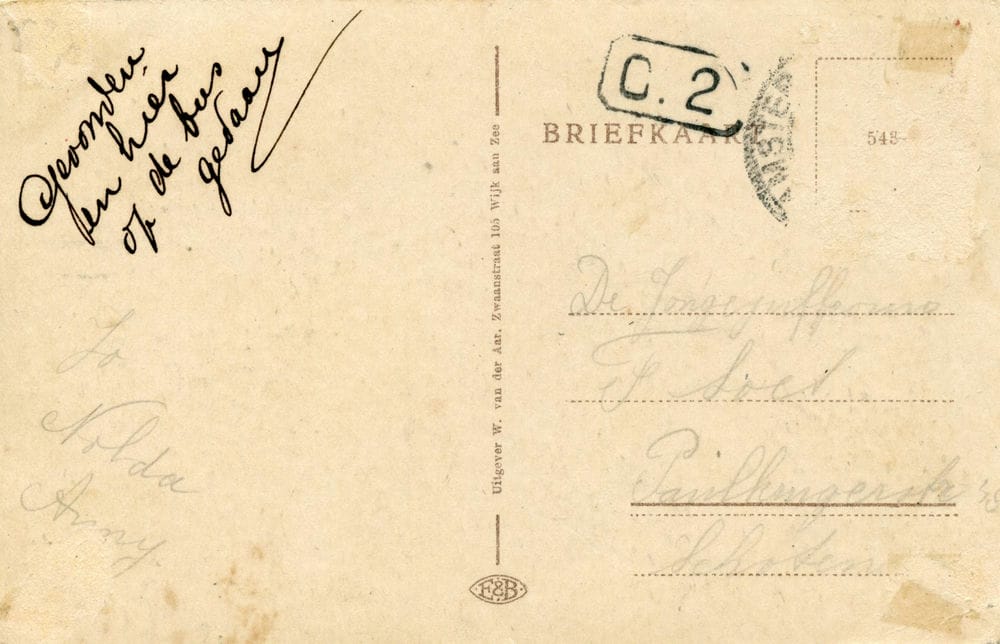 Gevonden
en hier
op de bus
gedaan
Jo
Nolda
Anny
Uitgever W. van der Aar. Zwaanstraat 105 Wijk aan Zee
E&B
C. 2
BRIEFKAART
548-
De Jongejuffrouw
Soet
Schoten